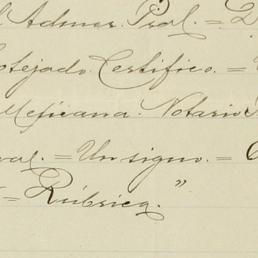 Admor. Pral. =
Cotejado. Certifico. =
Mexicana. Notario
= Un signo. =
= Rúbrica."